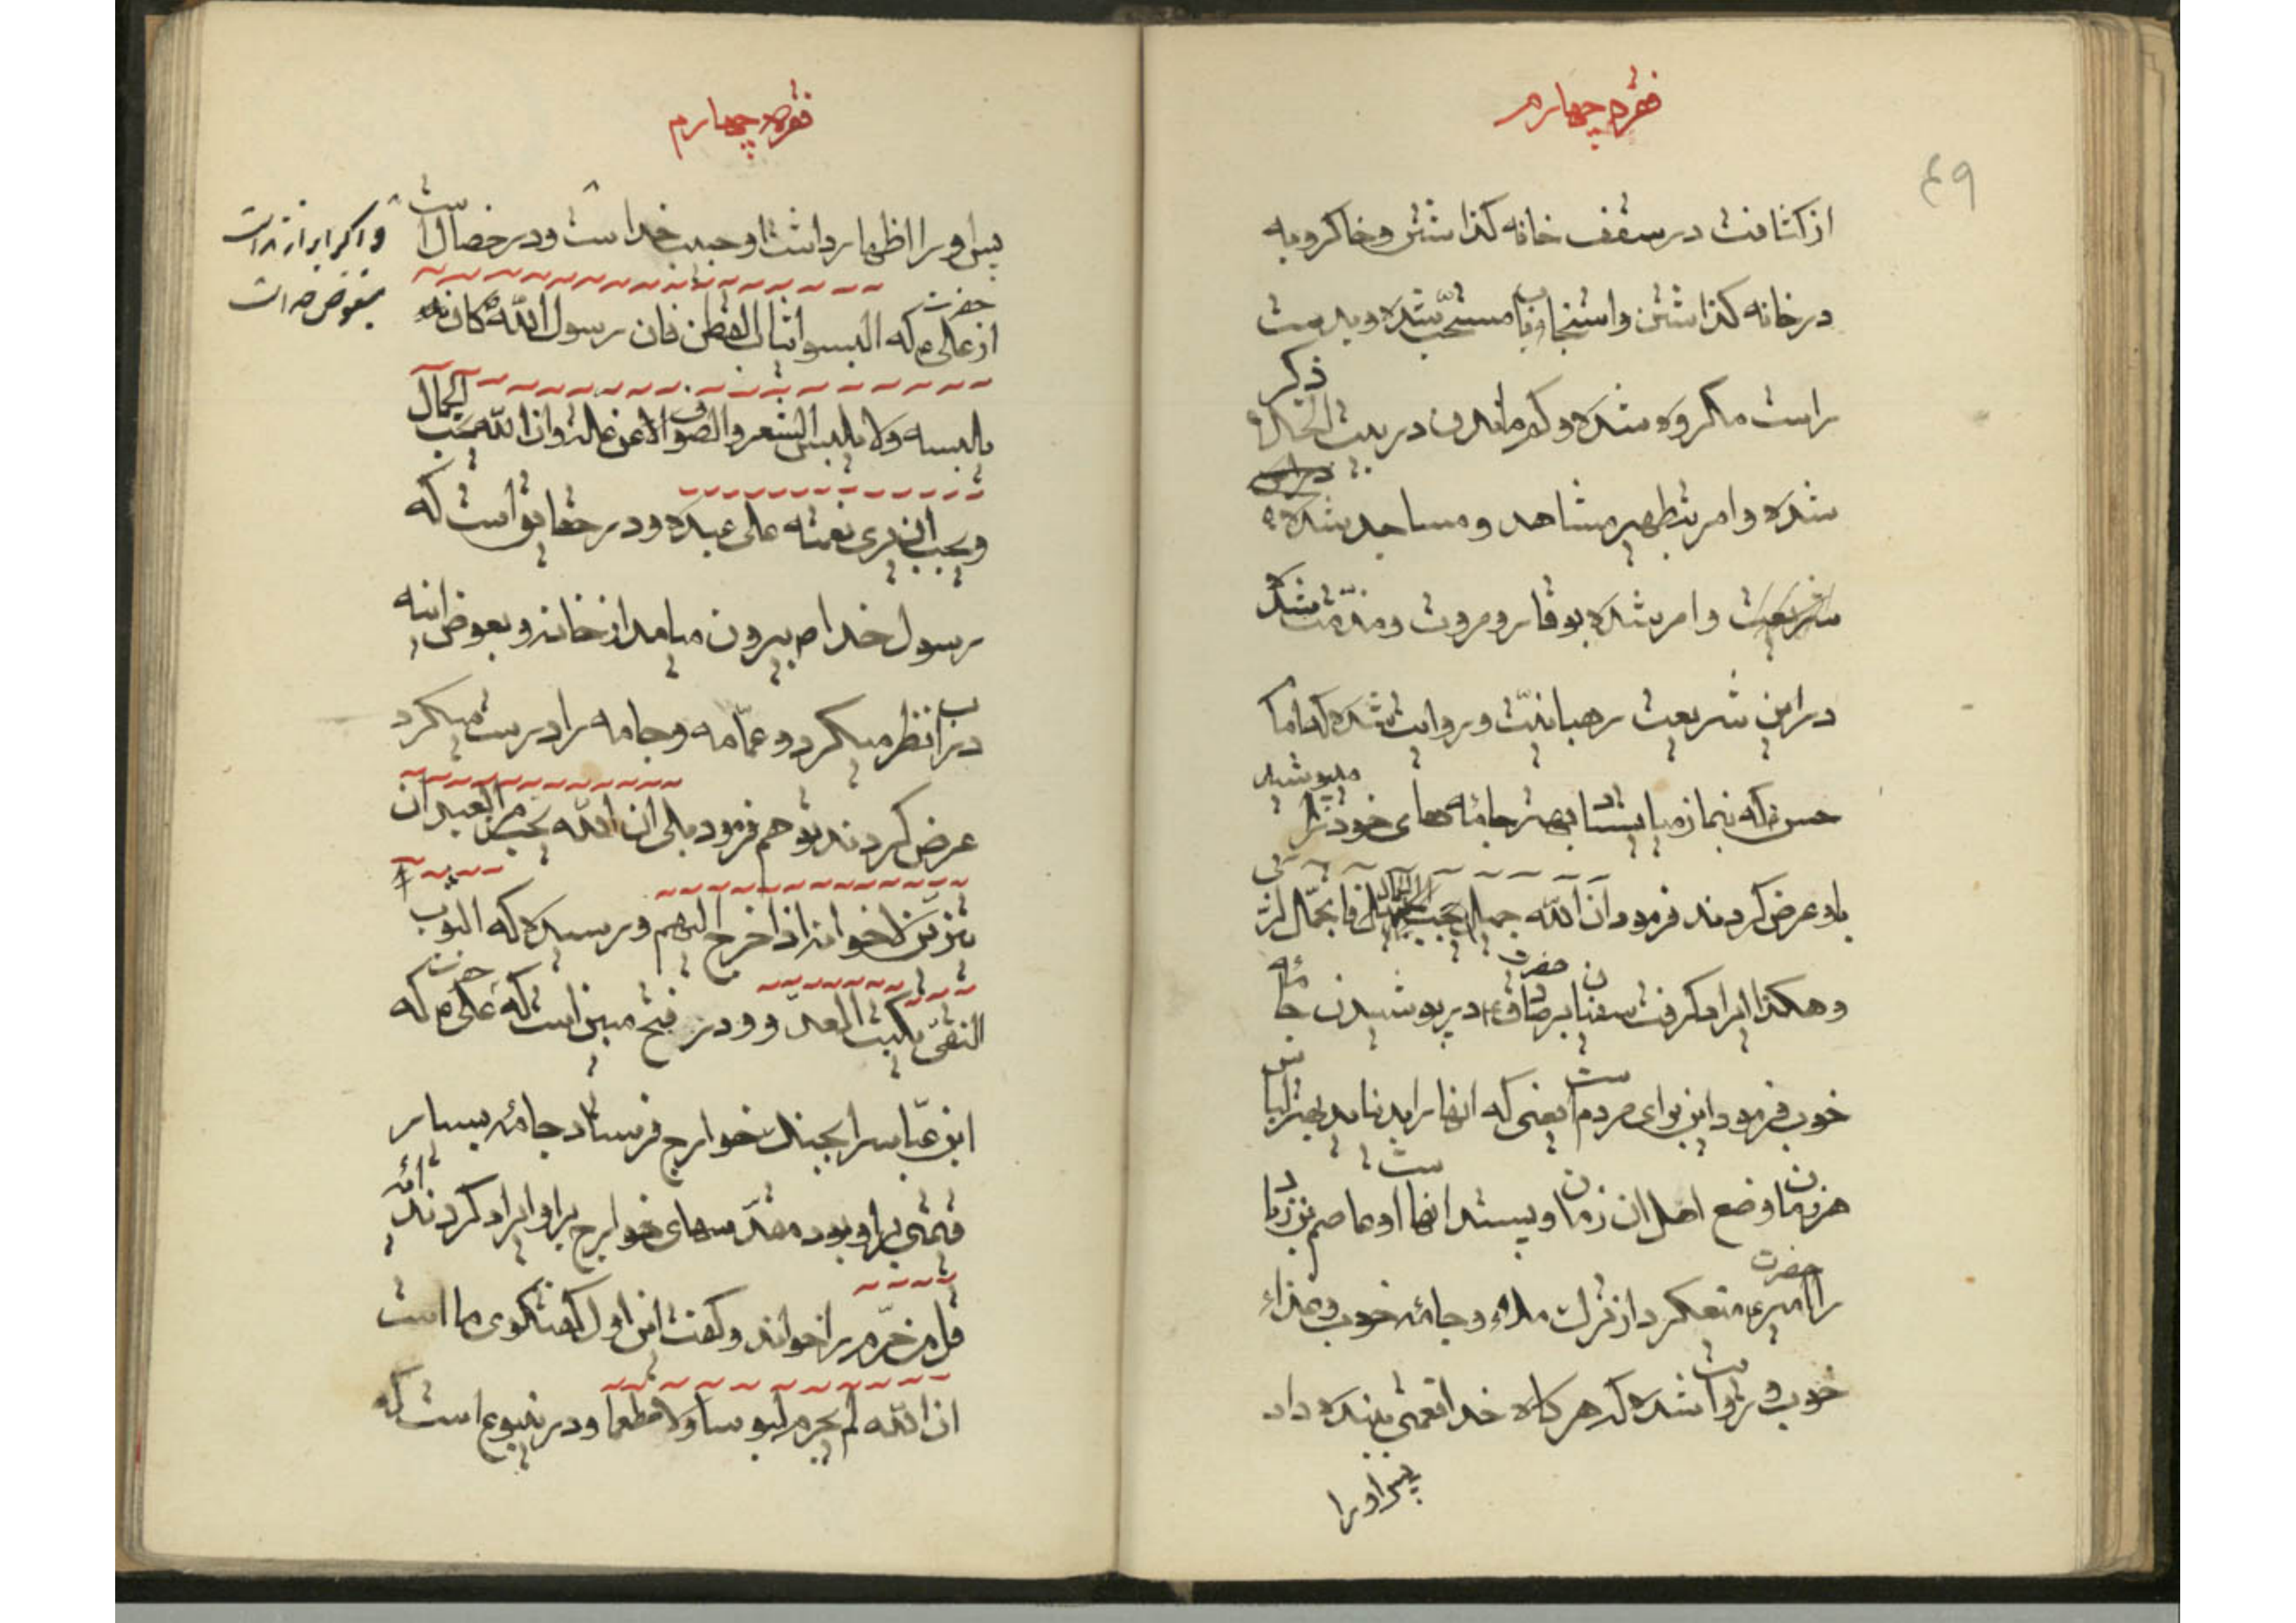 فقره چهارم
۴۹
از کثافت در سقف خانه گذاشتن و خاکروبه
در خانه گذاشتن و استنجا با مستحب شده و بدست
راست مکروه شده و کم ماندن در بیت الخلاء ذکر
شده و امر بتطهیر مشاهد و مساجد شده
شریعت و امر شده بوقار و مروت و مذمت شده
در این شریعت رهبانیت و روایت شده که امام
حسن که بنماز میایستاد بهتر جامه های خود را میپوشید
باو عرض کردند فرمود ان الله جمیل یحب الجمال فاتجمل لربی
و هکذا ایراد گرفت سفیان بر حضرت صادق ع در پوشیدن جامه
خوب فرمود این برای مردم است یعنی که انها را بد نیاید بهترین لباس
هر زمان وضع اهل ان زمان و پسند انها است و عاصم بن زیاد
را حضرت امیر ع منع کرد از ترک ملاء و جامه خوب و غذاء
خوب و روایت شده که هر گاه خدا نعمتی ببنده داد
پس او را
فقره چهارم
پس او را اظهار داشت او حبیب خداست و در خصال است
و اگر ابراز نداشت
مبغوض خداست
از حضرت علی ع که البسوا ثیاب القطن فان رسول الله ص کان
یلبسه و لا یلبس الشعر و الصوف الا عن علة و ان الله یحب الجمال
و یحب ان یری نعمته علی عبده و در حقایق است که
رسول خدا ص بیرون میامد از خانه و بعوض اینه
در اب نظر میکرد و عمامه و جامه را درست میکرد
عرض کردند تو هم فرمود بلی ان الله یحب من العبد ان
یتزین لاخوانه اذا خرج الیهم و رسیده که الثوب
النقی یکبت العدو و در فتح مبین است که حضرت علی ع که
ابن عباس را بجنک خوارج فرستاد جامه بسیار
قیمتی بر او بود مقدسهای خوارج بر او ایراد کردند
قل من حرم را خواند و گفت این اول گفتگوی ما است
ان الله لم یحرم لبوسا و لا مطعما و در ینبوع است که